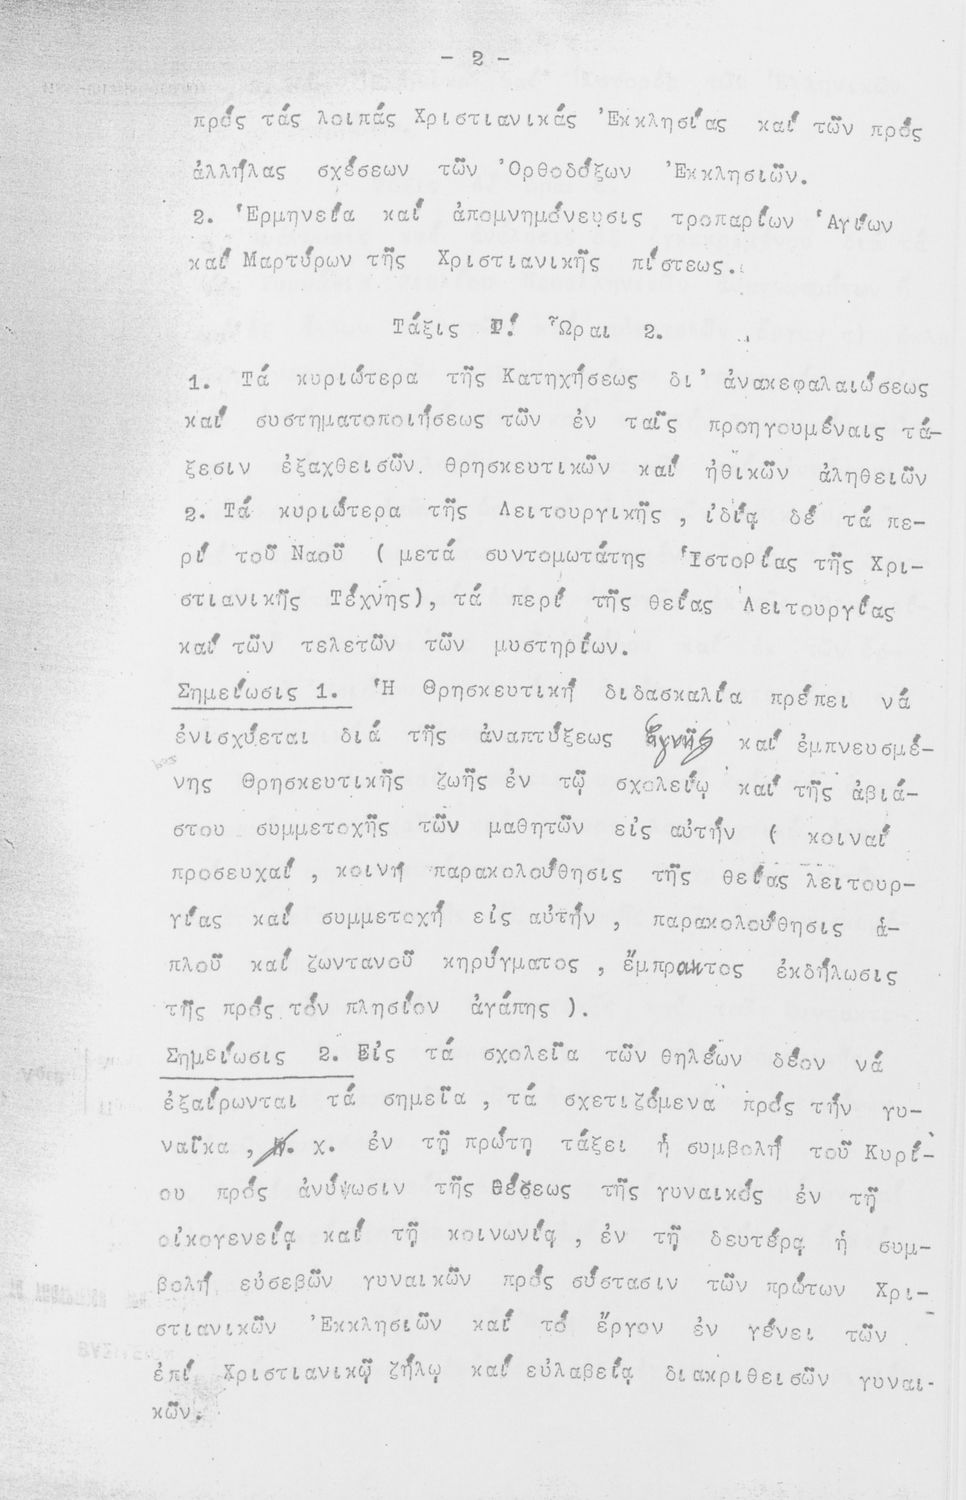 - 2 -
πρός τάς λοιπάς Χριστιανικάς Ἐκκλησίας καί τῶν πρός
ἀλλήλας σχέσεων τῶν Ὀρθοδόξων Ἐκκλησιῶν.
2. Ἑρμηνεία καί ἀπομνημόνευσις τροπαρίων Ἁγίων
καί Μαρτύρων τῆς Χριστιανικῆς πίστεως.
Τάξις Γ΄. Ὧραι 2.
1. Τά κυριώτερα τῆς Κατηχήσεως δι' ἀνακεφαλαιώσεως
καί συστηματοποιήσεως τῶν ἐν ταῖς προηγουμέναις τά-
ξεσιν ἐξαχθεισῶν θρησκευτικῶν καί ἠθικῶν ἀληθειῶν
2. Τά κυριώτερα τῆς Λειτουργικῆς , ἰδίᾳ δέ τά πε-
ρί τοῦ Ναοῦ ( μετά συντομωτάτης Ἱστορίας τῆς Χρι-
στιανικῆς Τέχνης), τά περί τῆς θείας Λειτουργίας
καί τῶν τελετῶν τῶν μυστηρίων.
Σημείωσις 1. Ἡ θρησκευτική διδασκαλία πρέπει νά
ἐνισχύεται διά τῆς ἀναπτύξεως ἁγνῆς καί ἐμπνευσμέ-
νης θρησκευτικῆς ζωῆς ἐν τῷ σχολείῳ καί τῆς ἀβιά-
στου συμμετοχῆς τῶν μαθητῶν εἰς αὐτήν ( κοιναί
προσευχαί , κοινή παρακολούθησις τῆς θείας λειτουρ-
γίας καί συμμετοχή εἰς αὐτήν , παρακολούθησις ἁ-
πλοῦ καί ζωντανοῦ κηρύγματος , ἔμπρακτος ἐκδήλωσις
τῆς πρός τόν πλησίον ἀγάπης ).
Σημείωσις 2. Εἰς τά σχολεῖα τῶν θηλέων δέον νά
ἐξαίρωνται τά σημεῖα , τά σχετιζόμενα πρός τήν γυ-
ναῖκα , π. χ. ἐν τῇ πρώτῃ τάξει ἡ συμβολή τοῦ Κυρί-
ου πρός ἀνύψωσιν τῆς θέσεως τῆς γυναικός ἐν τῇ
οἰκογενείᾳ καί τῇ κοινωνίᾳ , ἐν τῇ δευτέρᾳ ἡ συμ-
βολή εὐσεβῶν γυναικῶν πρός σύστασιν τῶν πρώτων Χρι-
στιανικῶν Ἐκκλησιῶν καί τό ἔργον ἐν γένει τῶν
ἐπί Χριστιανικῷ ζήλῳ καί εὐλαβείᾳ διακριθεισῶν γυναι-
κῶν.